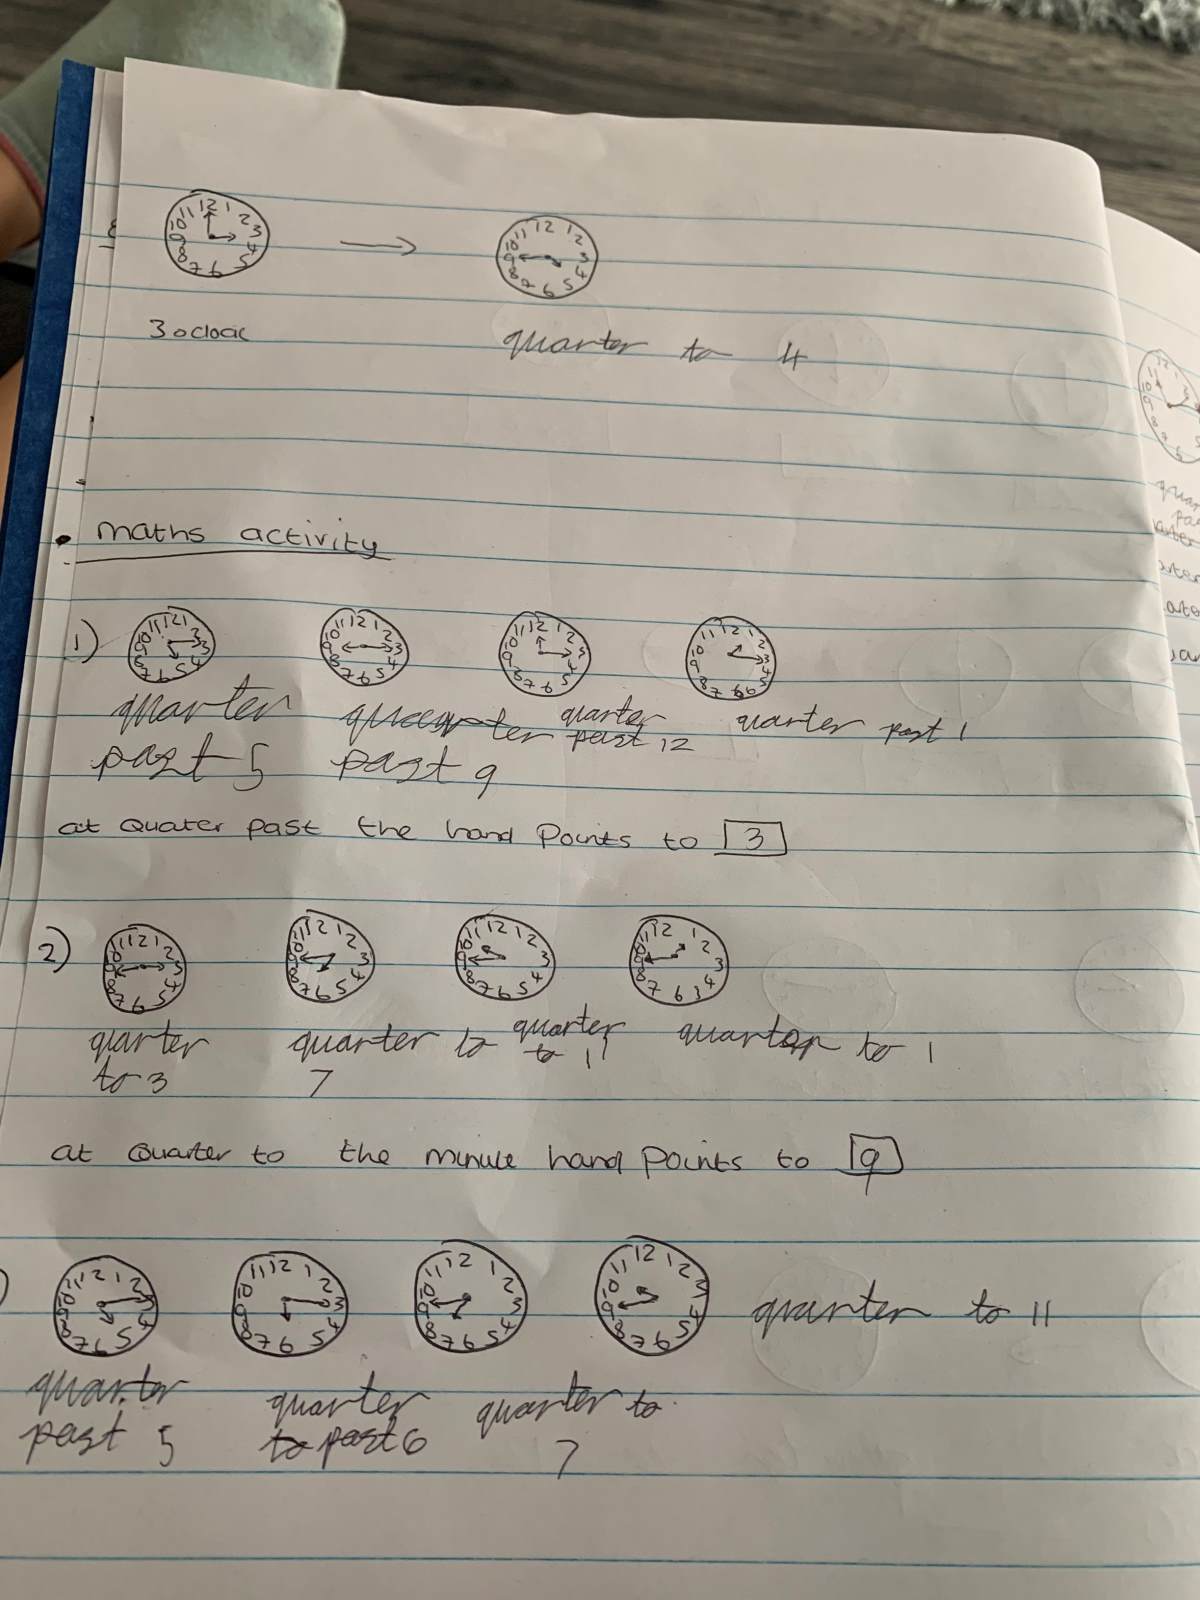 3 oclock
quarter to 4
maths activity
1)
quarter past 5
quarter past 9
quarter past 12
quarter past 1
at Quater past the hand Points to 3
2)
quarter to 3
quarter to 7
quarter to 11
quarter to 1
at Quarter to the minute hand Points to 9
quarter past 5
quarter to past 6
quarter to 7
quarter to 11